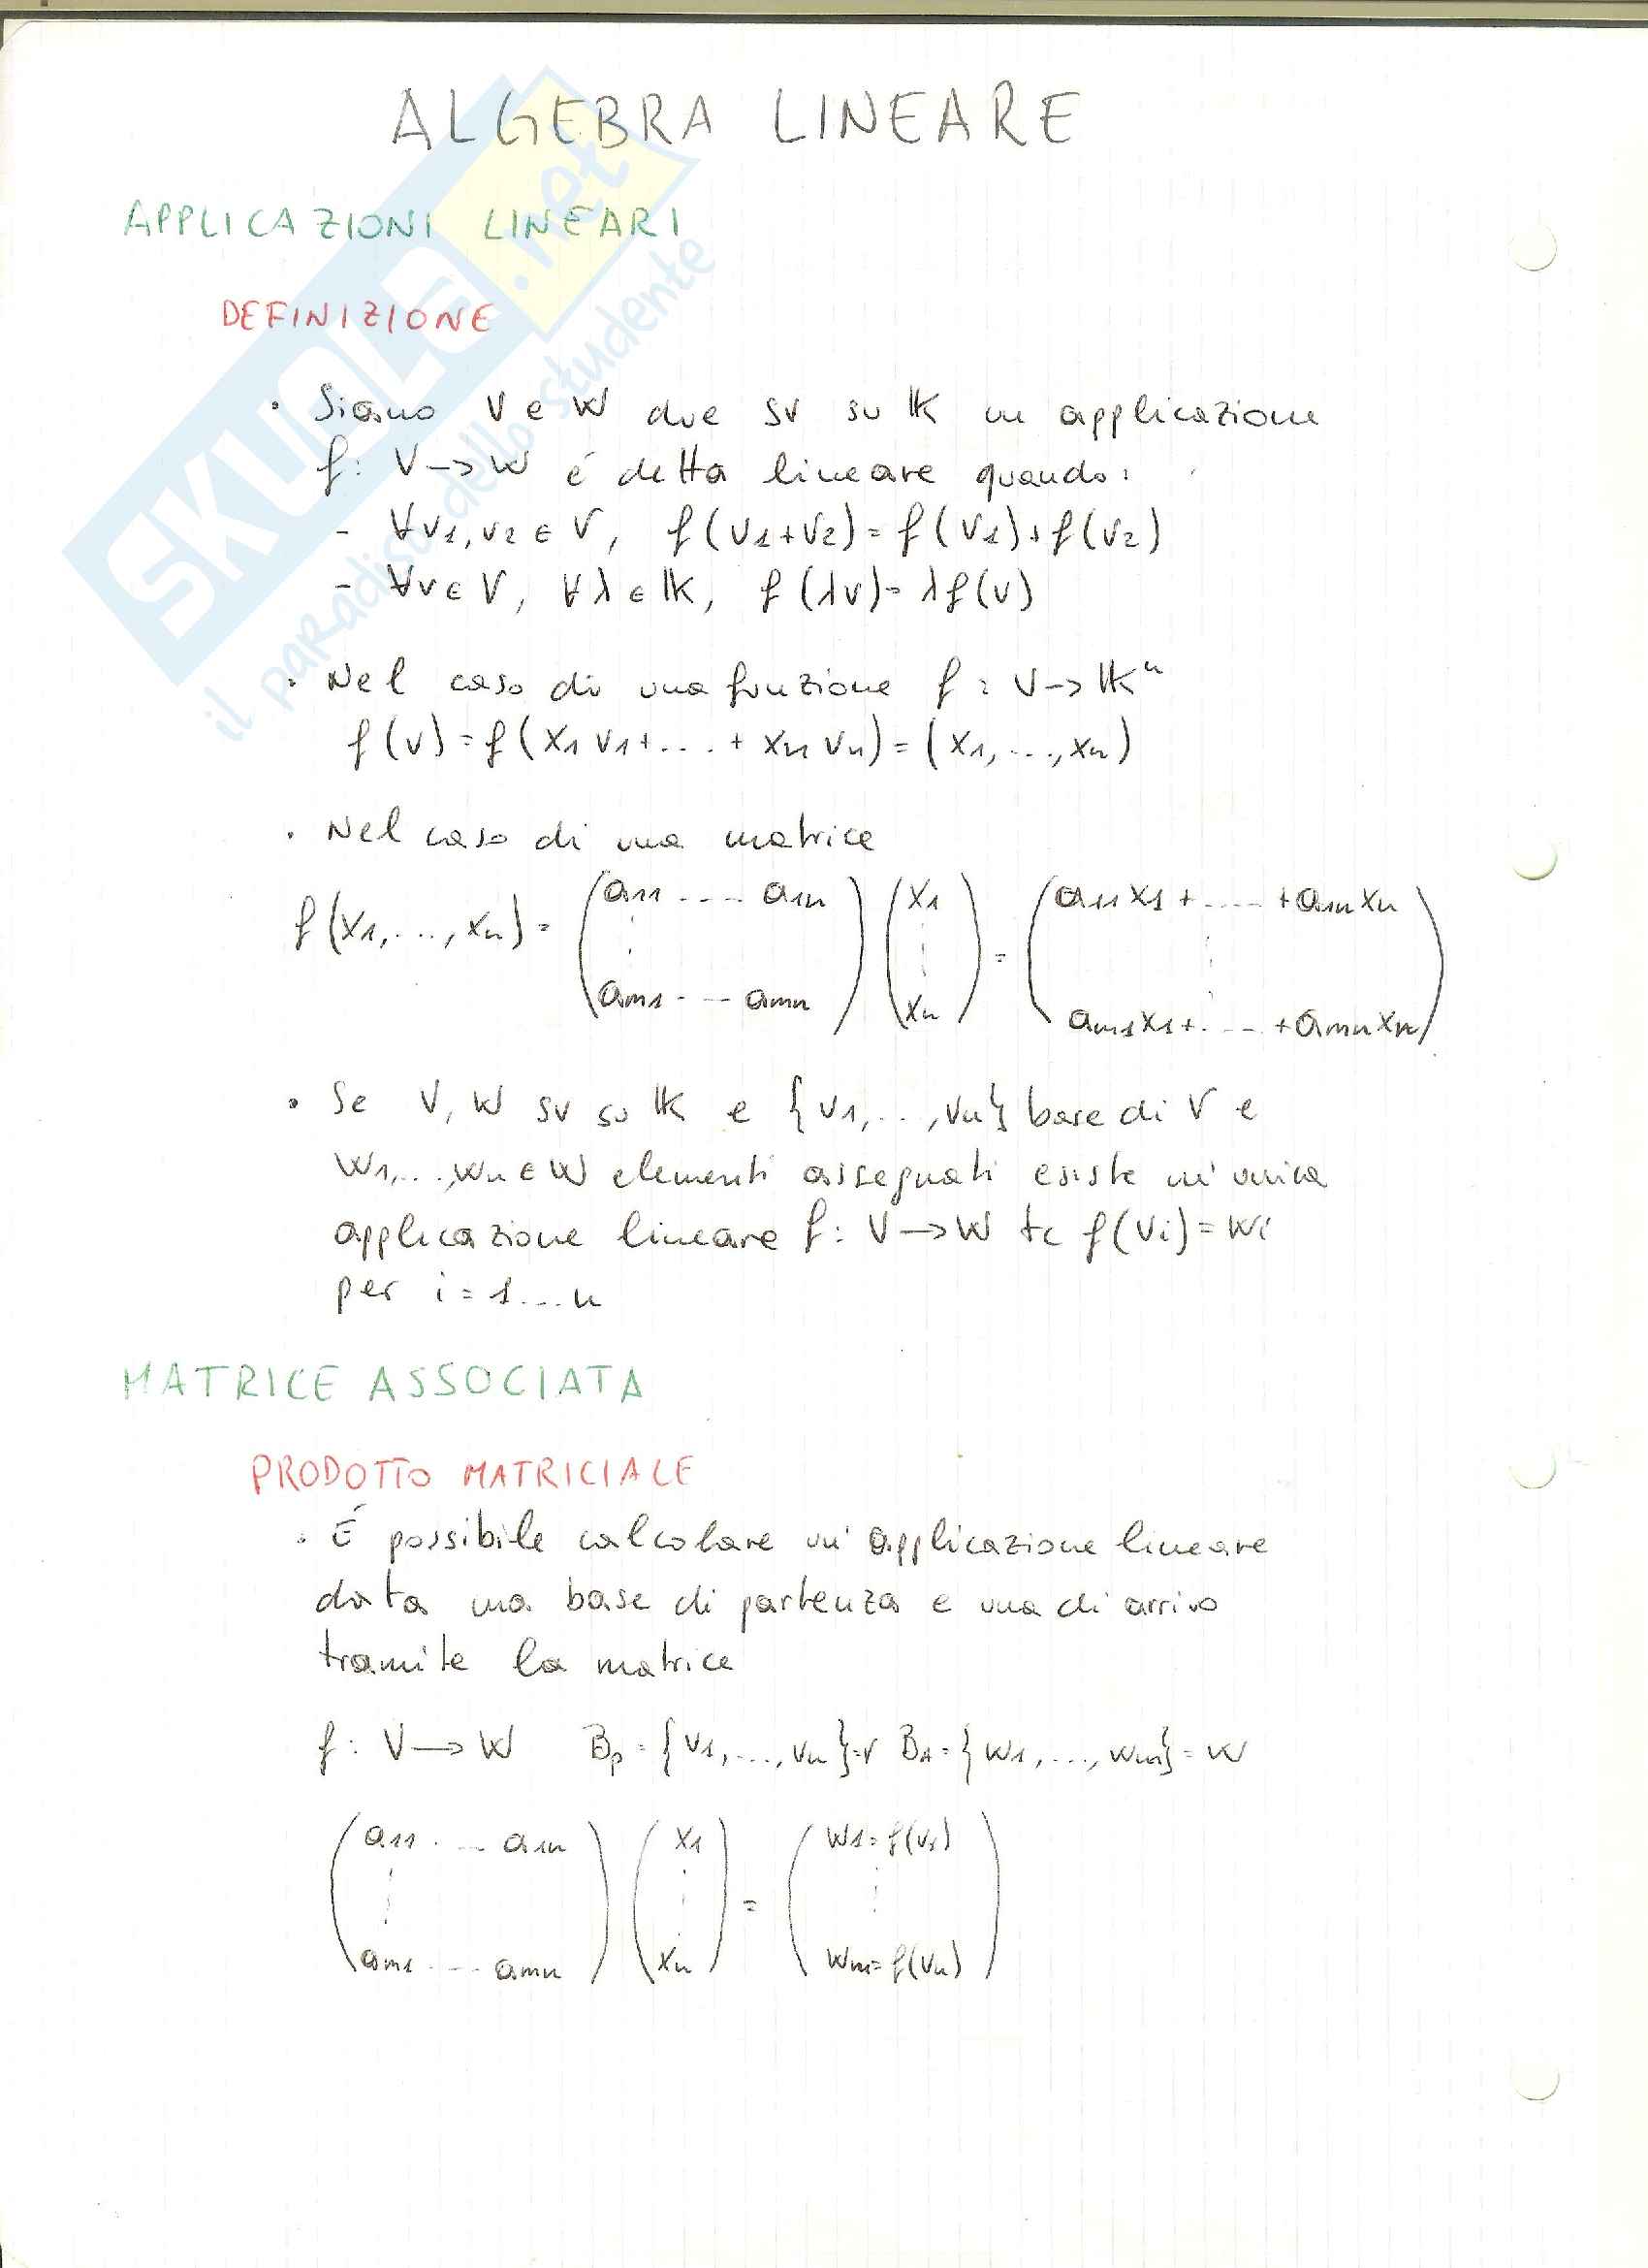 ALGEBRA LINEARE
APPLICAZIONI LINEARI
DEFINIZIONE
• Siano V e W due sv su K un applicazione
f: V → W é detta lineare quando:
- ∀v1, v2 ∈ V, f(v1+v2) = f(v1)+f(v2)
- ∀v ∈ V, ∀λ ∈ K, f(λv) = λf(v)
• Nel caso di una funzione f: V → K^n
f(v) = f(x1v1+....+xnvn) = (x1,...,xn)
• Nel caso di una matrice
f(x1,...,xn) = (a11 .... a1n ⋮ am1 .... amn) (x1 ⋮ xn) = (a11x1+.....+a1nxn ⋮ am1x1+.....+amnxn)
• Se V, W sv su K e {v1,...,vn} base di V e
w1,...,wn ∈ W elementi assegnati esiste un'unica
applicazione lineare f: V → W tc f(vi) = wi
per i = 1...n
MATRICE ASSOCIATA
PRODOTTO MATRICIALE
• É possibile calcolare un'applicazione lineare
data una base di partenza e una di arrivo
tramite la matrice
f: V → W Bp = {v1,...,vn} = V BA = {w1,...,wm} = W
(a11 .... a1n ⋮ am1 .... amn) (x1 ⋮ xn) = (w1 = f(v1) ⋮ wm = f(vn))
SKUOLA.net
il paradiso dello studente